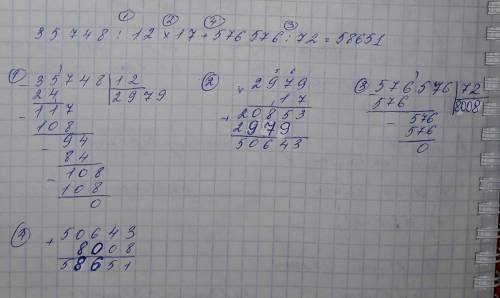 ① ② ④ ③
35748 : 12 × 17 + 576576 : 72 = 58651
① - 35748 | 12
24 | 2979
- 117
108
- 94
84
- 108
108
0
② × 2979
17
+ 20853
2979
50643
③ - 576576 | 72
576 | 8008
- 576
576
0
④ + 50643
8008
58651